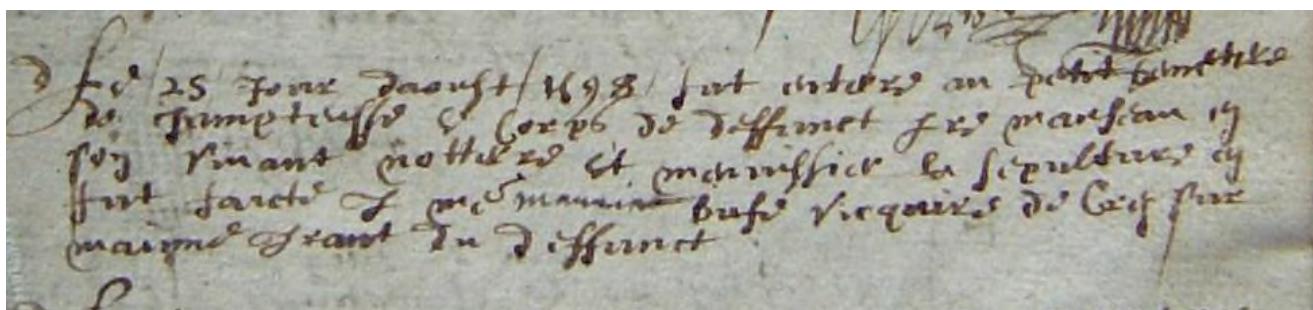 Le 25 Jour daoust 1598 fut enterre au petit semettere
de Champteussé le Corps de deffunct marseau en
son vivant nottere et menussier la sepulture en
fut faicte me maurice buse vicquaire de Cre sur
maigne du deffunct